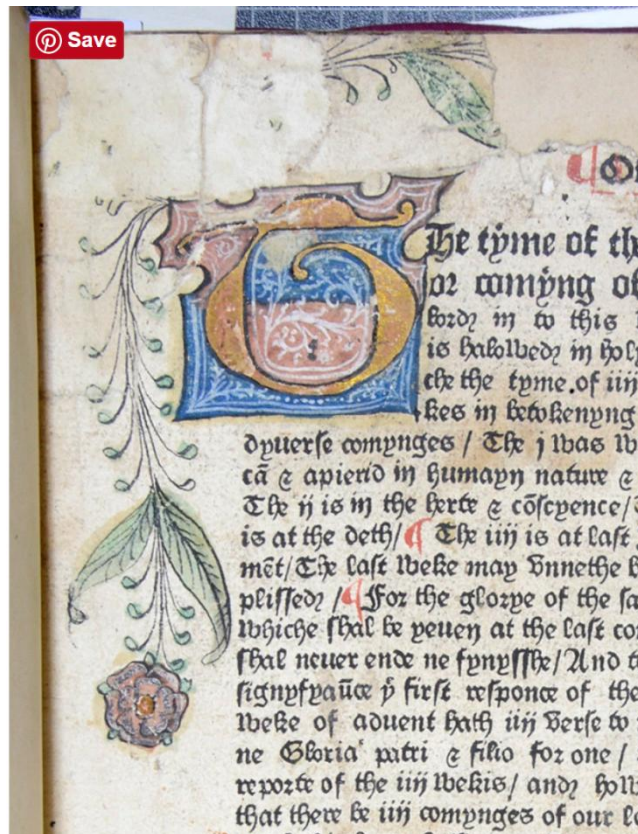 Save
THe tyme of th
or comyng of
lord in to this
is halowed in hol
che the tyme.of iiij
kes in betokenyng
dyuerse comynges / The j was w
cā & apierid in humayn nature &
The ij is in the herte & cōscyence/
is at the deth/¶ The iiij is at last
mēt/The last weke may vnnethe
plissed /¶For the glorye of the sa
whiche shal be yeuen at the last co
shal neuer ende ne fynysshe/And t
signyfyaūce ẏ first responce of the
weke of aduent hath iiij verse to
ne Gloria patri & filio for one /
reporte of the iiij wekis/ and how
that there be iiij comynges of our lo